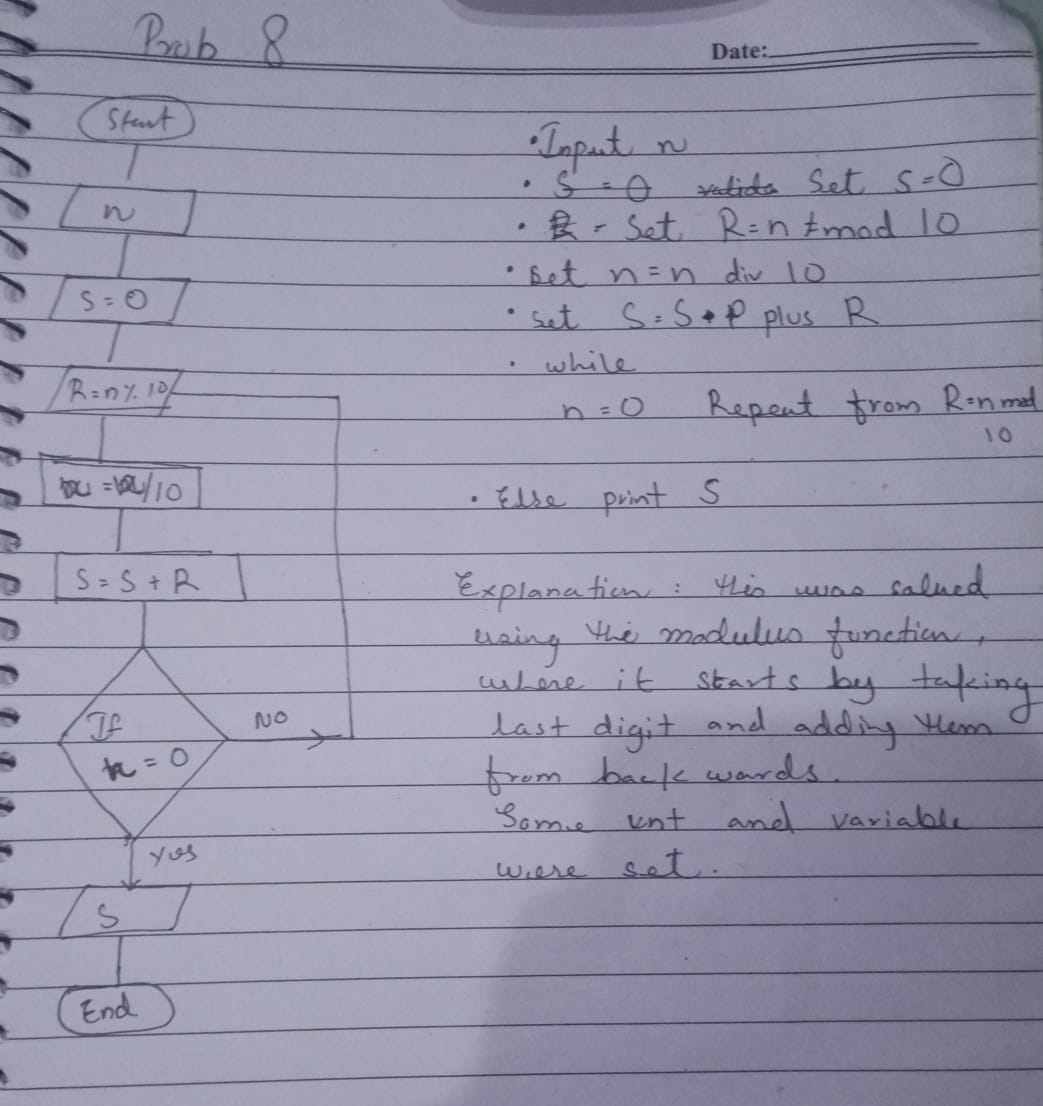 Prob 8
Date:
Start
n
S=0
R=n%10
=/10
S=S+R
If
n=0
NO
Yes
S
End
• Input n
• S=0 Set S=0
• - Set R=n mod 10
• Set n=n div 10
• set S=S plus R
• while
n=0 Repeat from R=n mod
10
• Else print S
Explanation : this was salued
using the modulus function,
where it starts by taking
last digit and adding them
from back wards.
Some int and variable
were set.